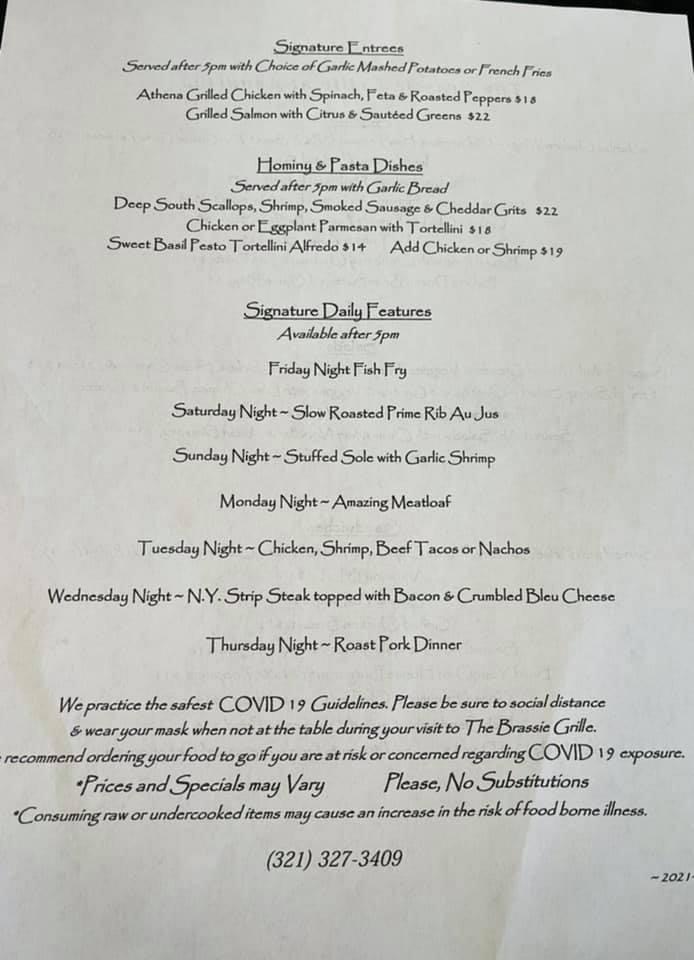 Signature Entrees
Served after 5pm with Choice of Garlic Mashed Potatoes or French Fries
Athena Grilled Chicken with Spinach, Feta & Roasted Peppers $18
Grilled Salmon with Citrus & Sautéed Greens $22
Hominy & Pasta Dishes
Served after 5pm with Garlic Bread
Deep South Scallops, Shrimp, Smoked Sausage & Cheddar Grits $22
Chicken or Eggplant Parmesan with Tortellini $18
Sweet Basil Pesto Tortellini Alfredo $14 Add Chicken or Shrimp $19
Signature Daily Features
Available after 5pm
Friday Night Fish Fry
Saturday Night ~ Slow Roasted Prime Rib Au Jus
Sunday Night ~ Stuffed Sole with Garlic Shrimp
Monday Night ~ Amazing Meatloaf
Tuesday Night ~ Chicken, Shrimp, Beef Tacos or Nachos
Wednesday Night ~ N.Y. Strip Steak topped with Bacon & Crumbled Bleu Cheese
Thursday Night ~ Roast Pork Dinner
We practice the safest COVID 19 Guidelines. Please be sure to social distance
& wear your mask when not at the table during your visit to The Brassie Grille.
recommend ordering your food to go if you are at risk or concerned regarding COVID 19 exposure.
*Prices and Specials may Vary Please, No Substitutions
*Consuming raw or undercooked items may cause an increase in the risk of food borne illness.
(321) 327-3409
~ 2021~